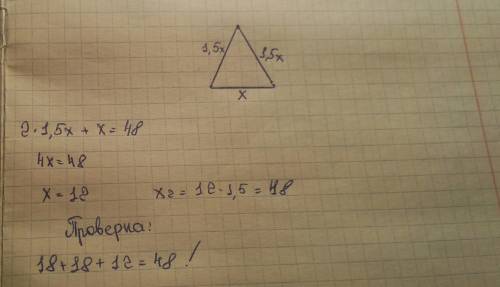 1,5x 1,5x
x
2·1,5x + x = 48
4x = 48
x = 12 x₂ = 12·1,5 = 18
Проверка:
18 + 18 + 12 = 48!